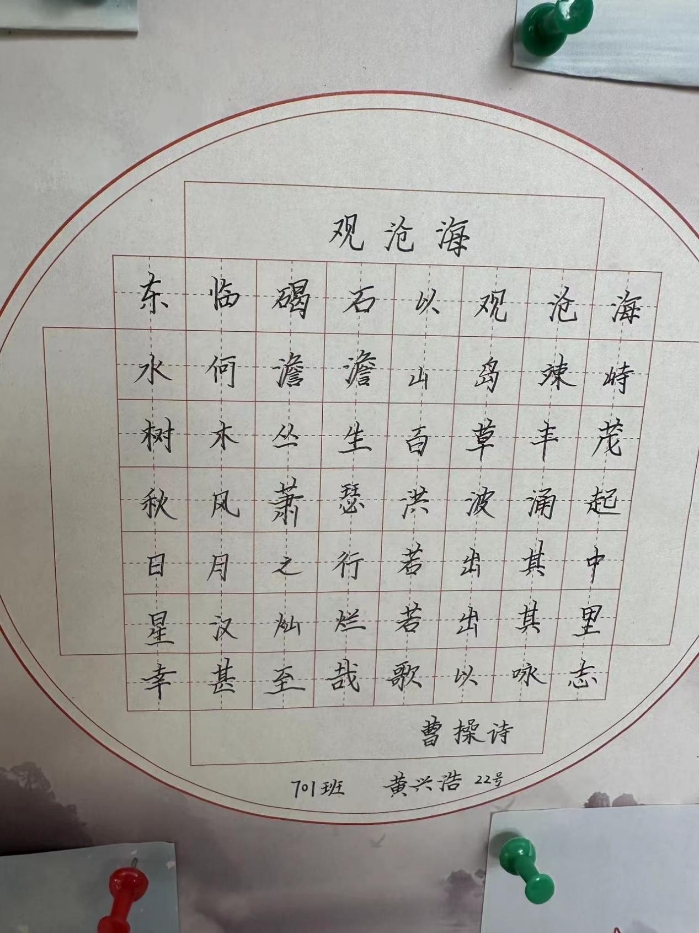 观沧海
东临碣石以观沧海
水何澹澹山岛竦峙
树木丛生百草丰茂
秋风萧瑟洪波涌起
日月之行若出其中
星汉灿烂若出其里
幸甚至哉歌以咏志
曹操诗
701班 黄兴浩 22号